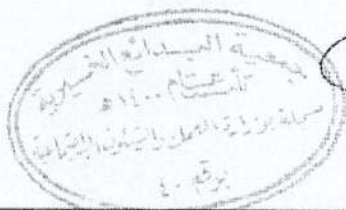 جمعية البدائع الخيرية
تأسست عام ١٤٠٠هـ
مسجلة بوزارة العمل والشئون الاجتماعية
برقم ٤٠